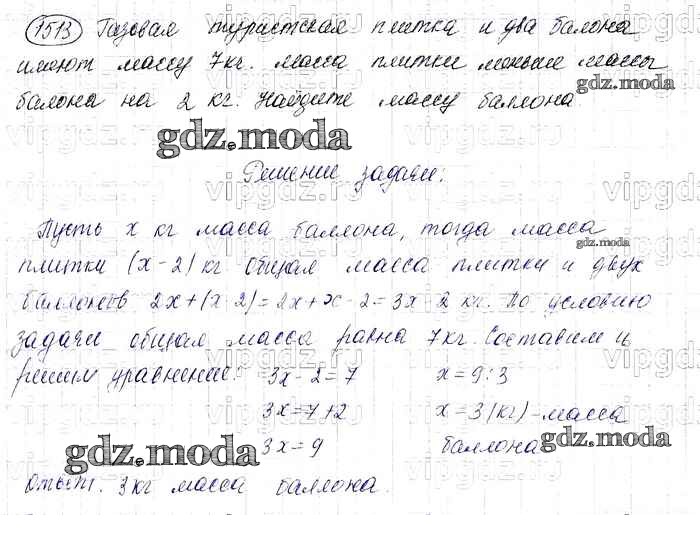 1513 Газовая туристская плитка и два балона
имеют массу 7кг. масса плитки меньше массы
балона на 2 кг. Найдите массу баллона
gdz.moda
gdz.moda
Решение задачи:
Пусть x кг масса баллона, тогда масса
gdz.moda
плитки (x-2) кг общая масса плитки и двух
баллонов 2x+(x-2)=2x+x-2=3x-2 кг. По условию
задачи общая масса равна 7кг. Составим и
решим уравнение: 3x-2=7 x=9:3
3x=7+2 x=3(кг)-масса
gdz.moda 3x=9 баллона gdz.moda
ответ. 3кг масса баллона.